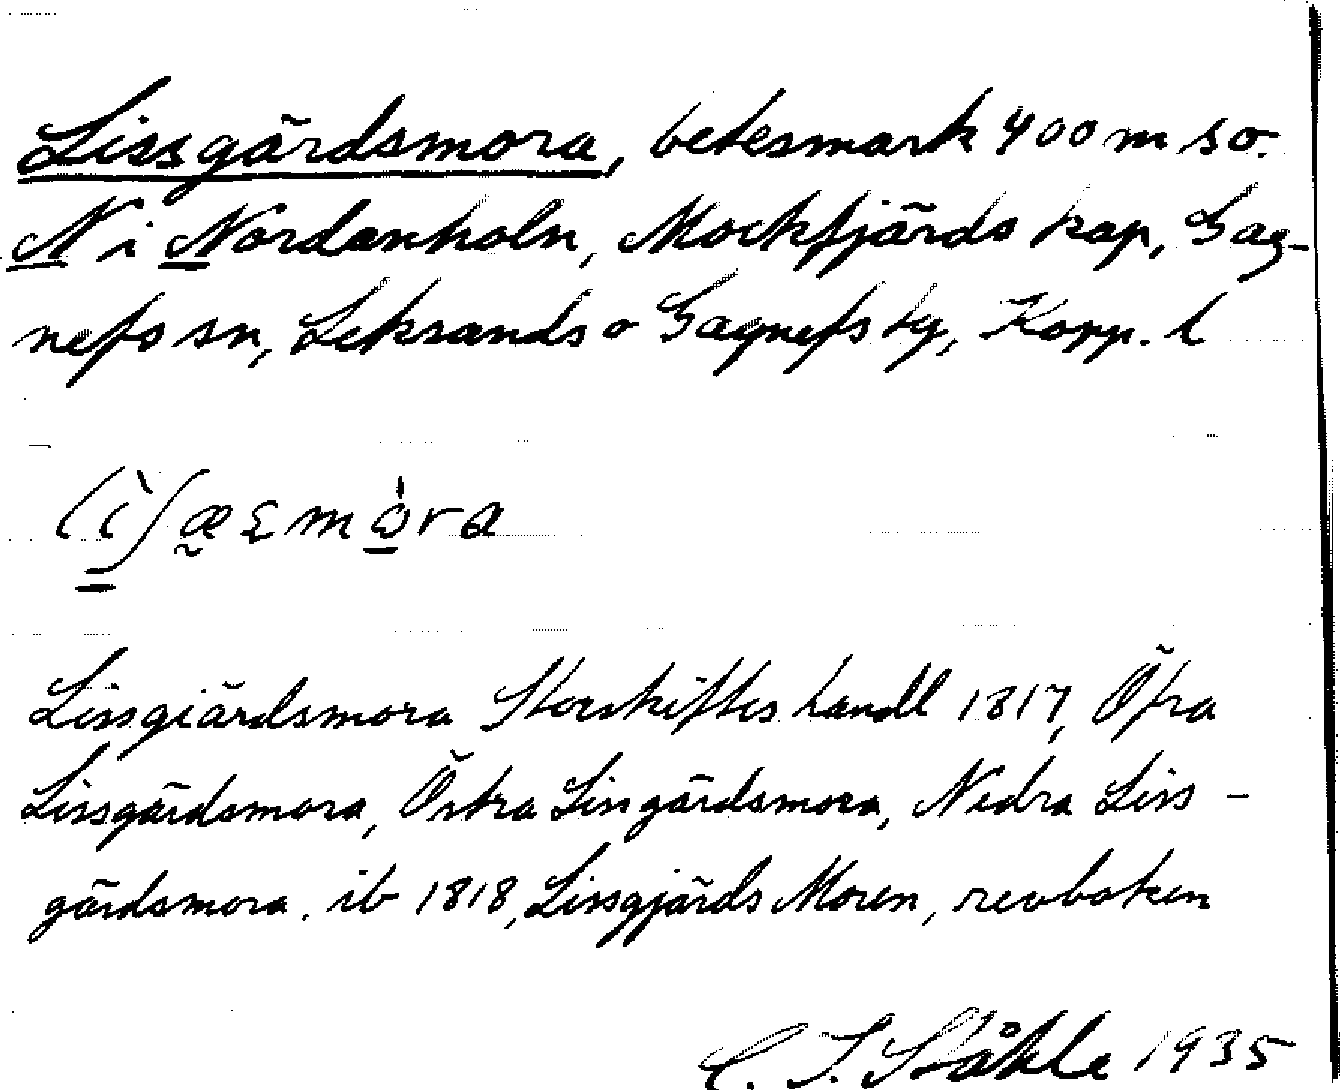 Lissgärdsmora, betesmark 400 m so.
N i Nordanholn, Mockfjärds kap, Gag-
nefs sn, Leksands o Gagnefs tg, Kopp. l
Lissgiärdsmora Storskiftes handl 1817, Öfra
Lissgärdsmora, Östra Lissgärdsmora, Nedra Liss-
gärdsmora. ib 1818, Lissgjärds Moren, revboken
C. I. Ståhle 1935